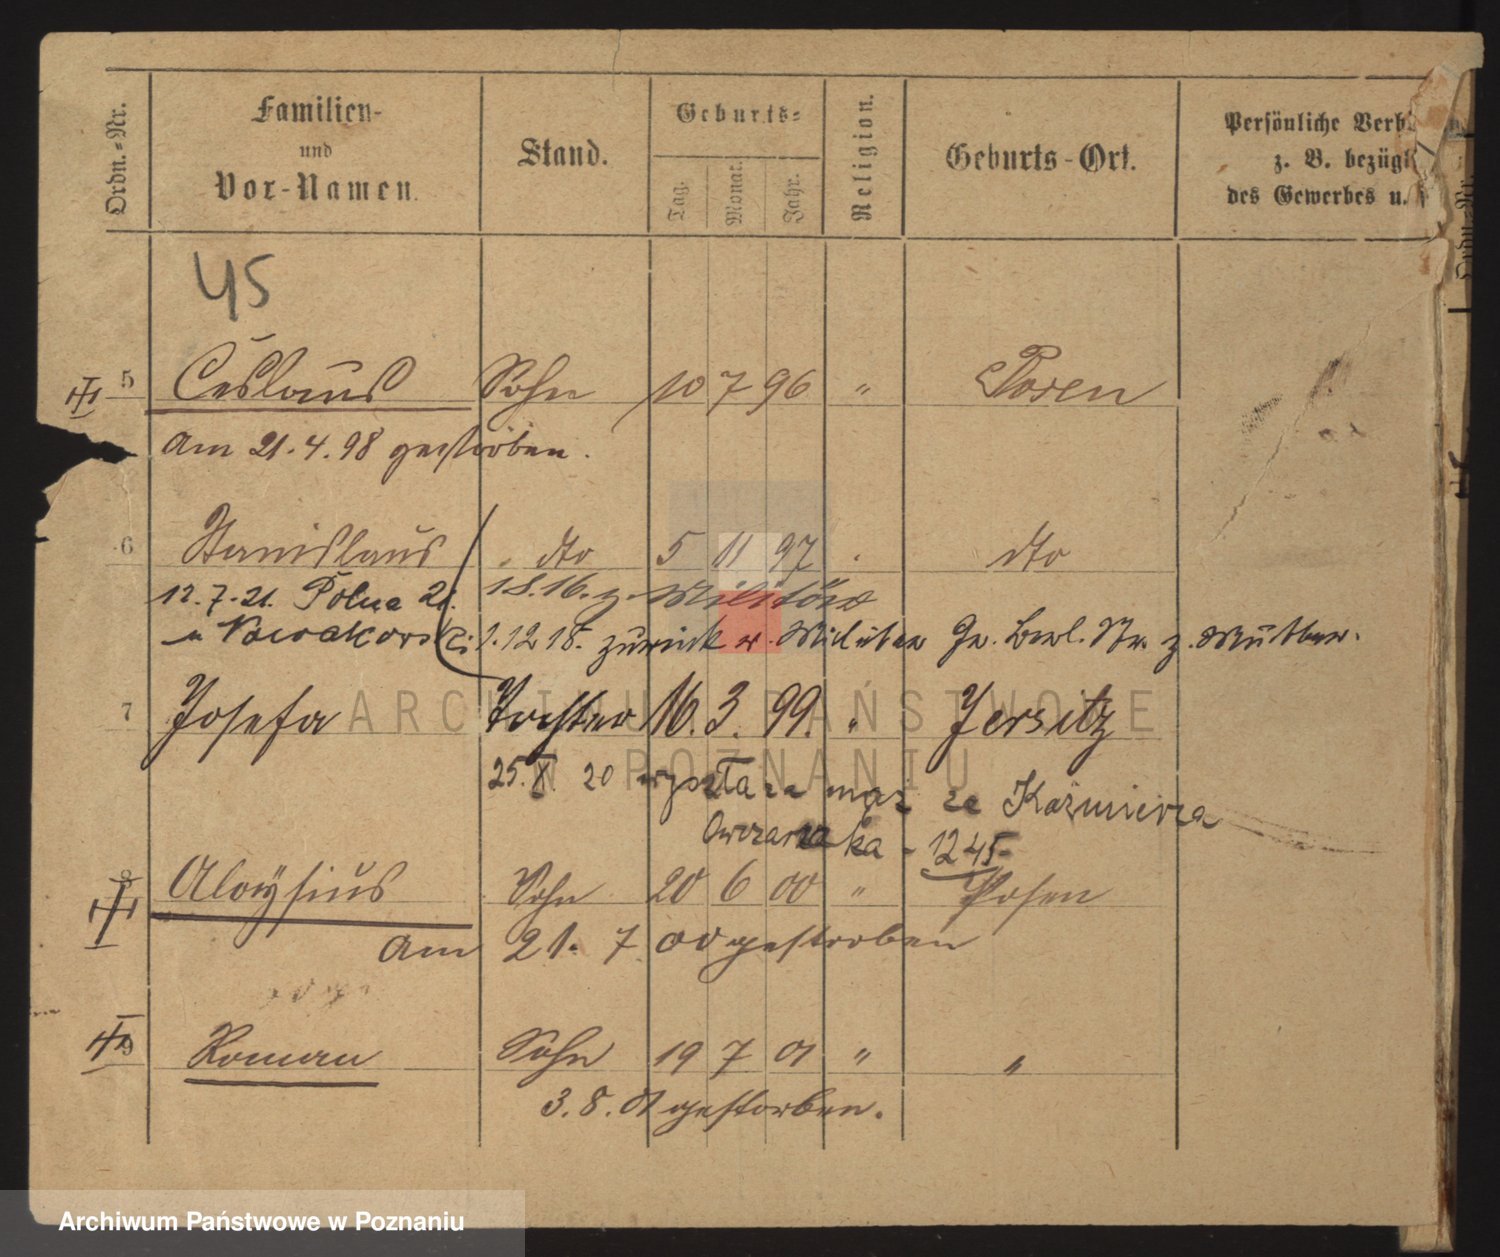 Ordn.-Nr.
Familien-
und
Vor-Namen.
Stand.
Geburts-
Tag.
Monat.
Jahr.
Religion.
Geburts-Ort.
Persönliche Verh
z. B. bezügl
des Gewerbes u.
Ordn.-Nr.
45
5 Ceslaus Sohn 10 7 96 " Posen
Am 21.4.98 gestorben.
6 Stanislaus dto 5 11 97 dto
12.7.21. Polna 21. 18.16. z. Militär
u Nowakowski 1.12 18. zurück v. Militär Gr. Berl. Str. z. Mutter.
7 Josefa Tochter 16. 3. 99. " Jersitz
25.X. 20 wyszła za mąż za Kaźmierza
Owczarzaka - 1245
8 Aloysius Sohn 20 6 00 " Posen
Am 21. 7. 00 gestorben
9 Roman Sohn 19 7 01 " "
3. 8. 01 gestorben.
ARCHIWUM PAŃSTWOWE
W POZNANIU
Archiwum Państwowe w Poznaniu